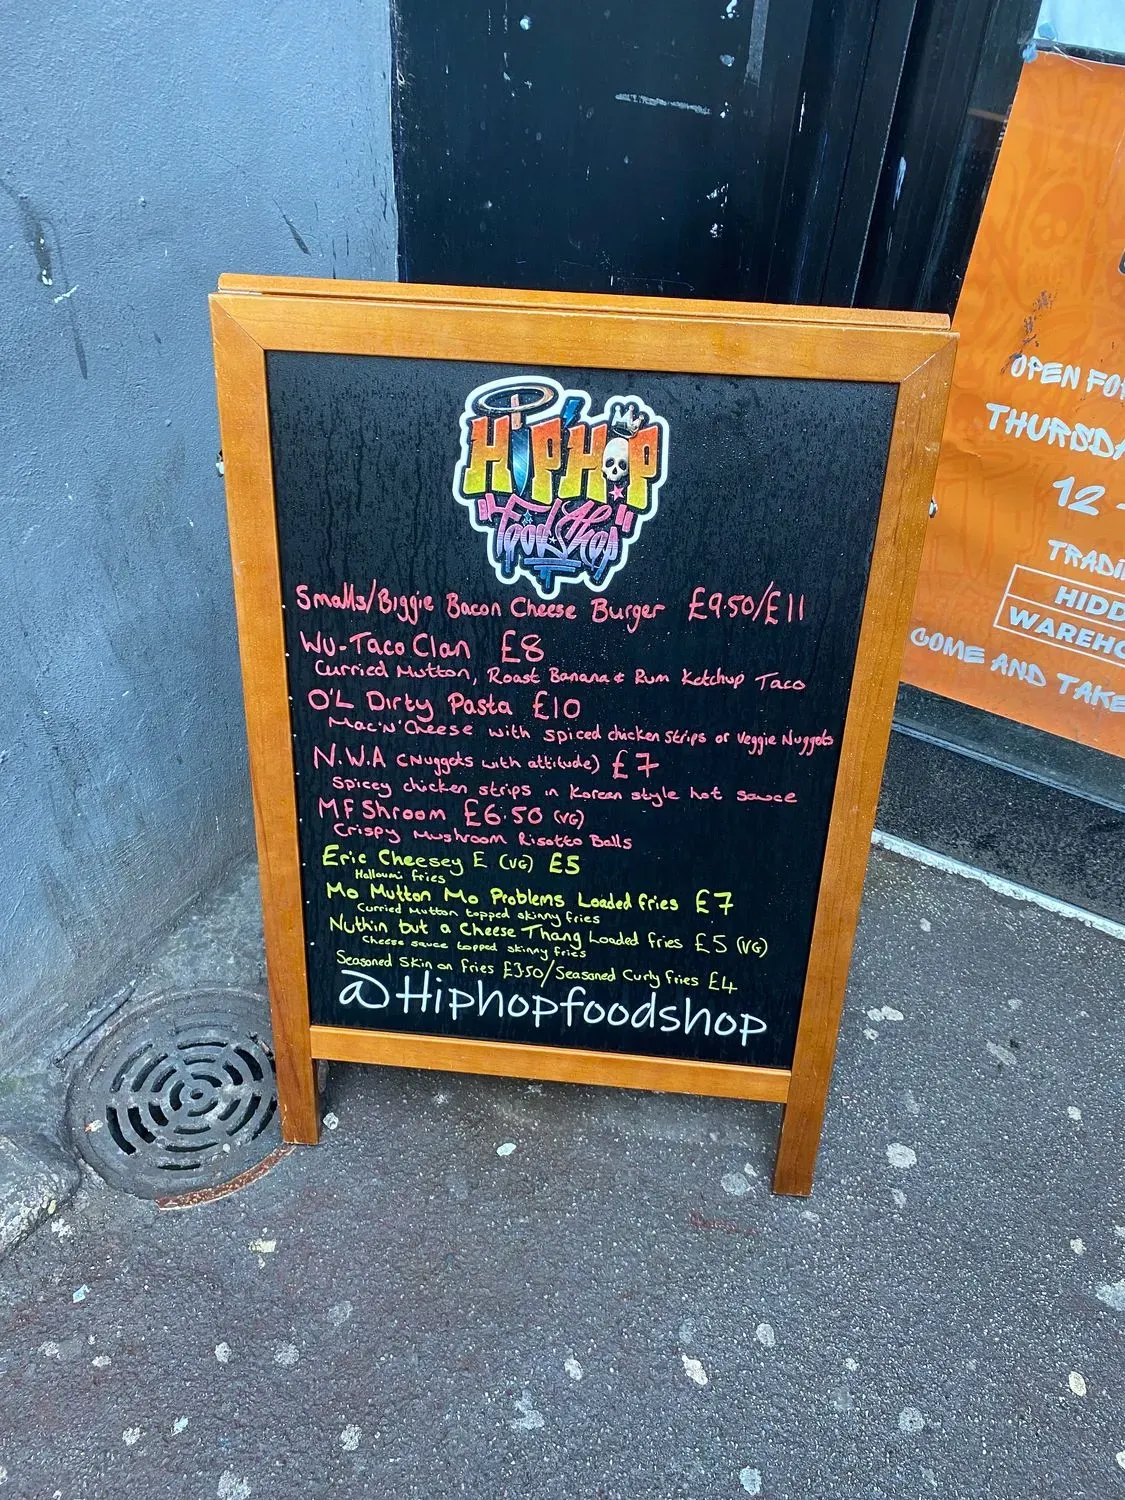 HIP HOP
"Food Shop"
Smalls/Biggie Bacon Cheese Burger £9.50/£11
Wu-Taco Clan £8
Curried Mutton, Roast Banana & Rum Ketchup Taco
O'L Dirty Pasta £10
Mac'N'Cheese with spiced chicken strips or Veggie Nuggets
N.W.A (Nuggets with attitude) £7
Spicey chicken strips in Korean style hot sauce
MF Shroom £6.50 (VG)
Crispy Mushroom Risotto Balls
Eric Cheesey E (VG) £5
Halloumi fries
Mo Mutton Mo Problems Loaded fries £7
Curried Mutton topped skinny fries
Nuthin but a Cheese Thang Loaded fries £5 (VG)
Cheese sauce topped skinny fries
Seasoned Skin on fries £3.50/Seasoned Curly fries £4
@Hiphopfoodshop
OPEN FO
THURSDA
12 -
TRADI
HIDD
WAREHO
COME AND TAKE